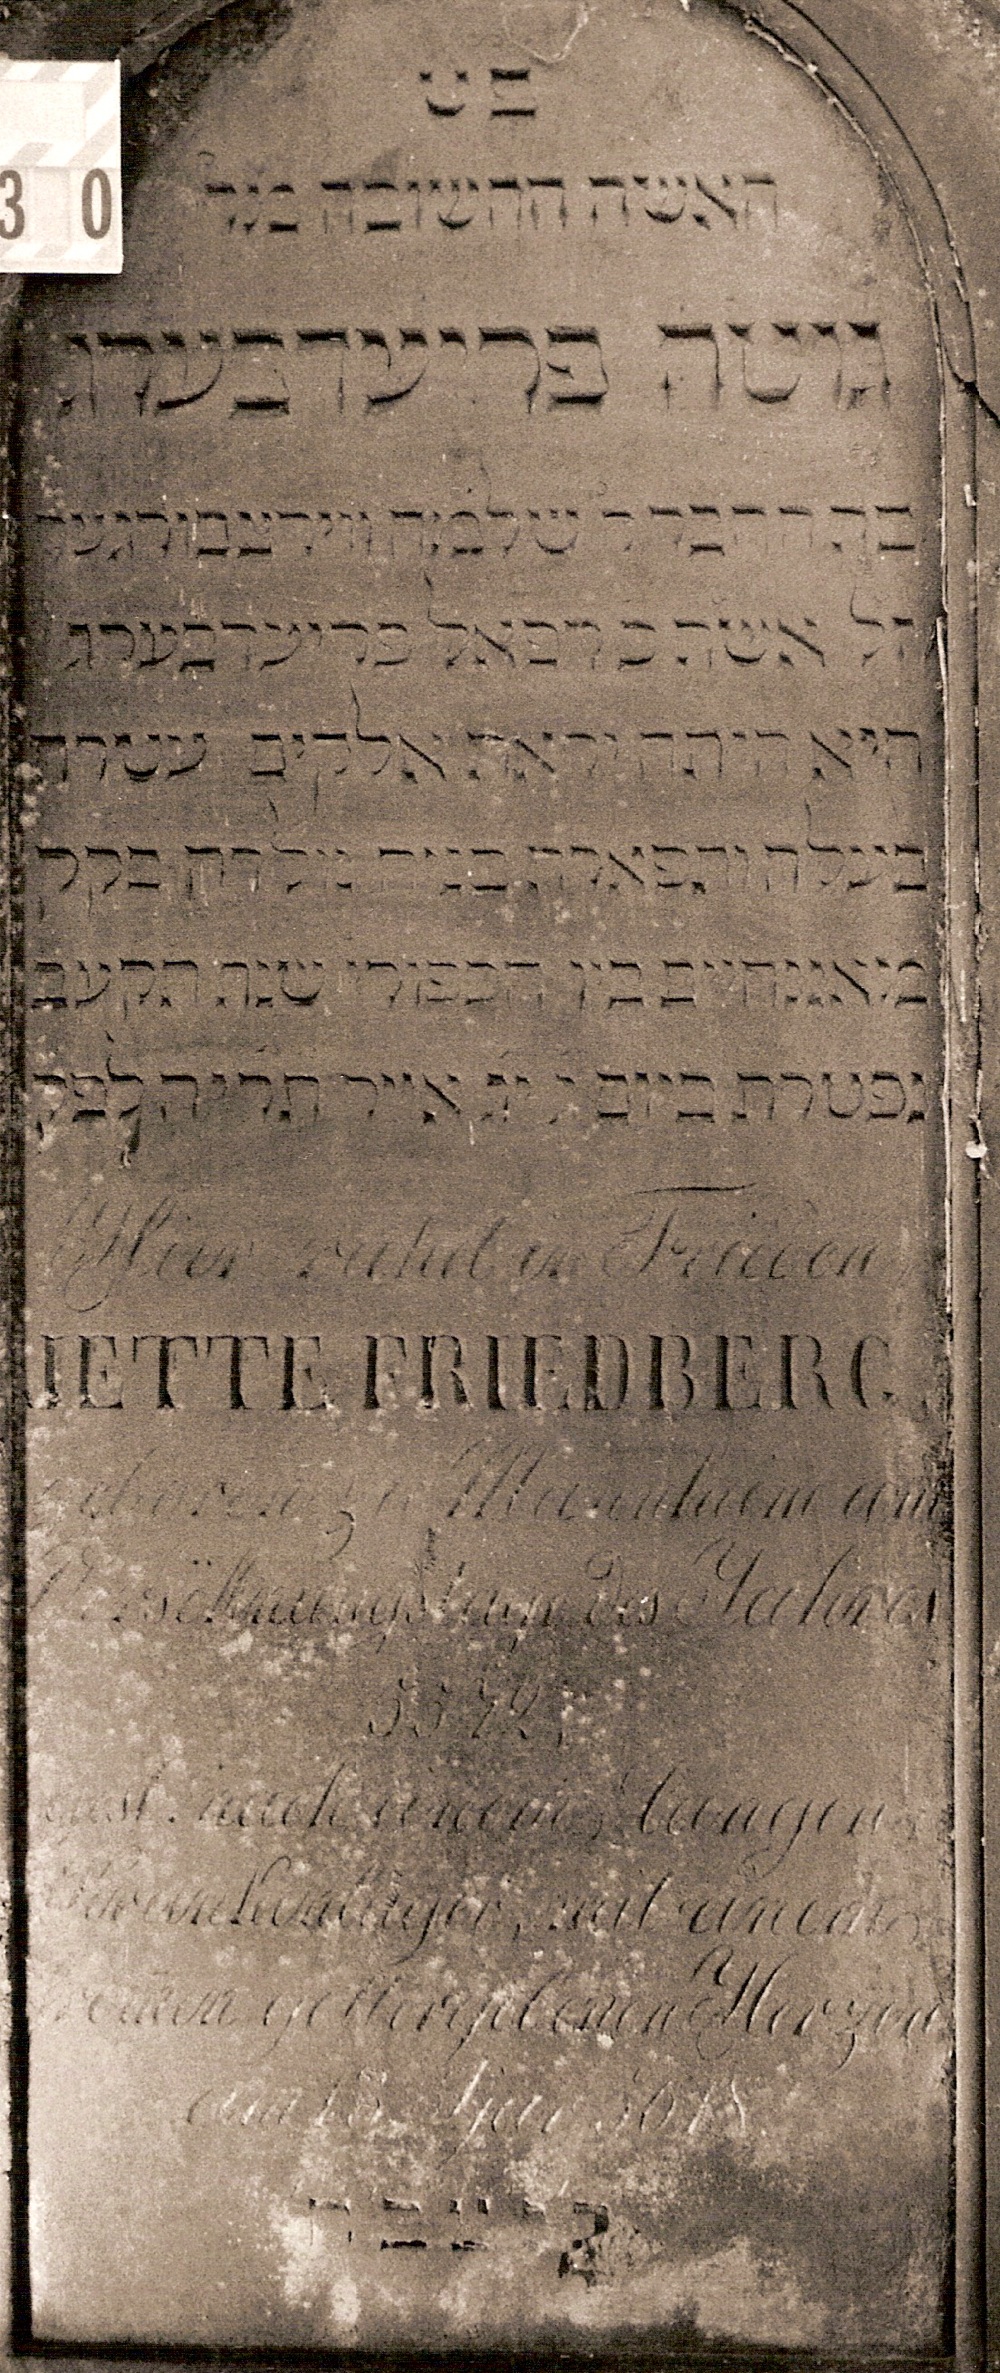 פ ט
האשה החשובה מר
גיטה פריעדבערג
בת החבר ר שלמה ווירצבורגער
זל אשת כ רפאל פריעדבערג
היא היתה יראת אלקים עטרת
בעלה ותפארת בניה נולדה בקק
מאנהיים ביו הכפורי שנת תקעב
נפטרת ביום ג יג אייר תריח לפק
Hier ruhet in Frieden
JETTE FRIEDBERG
geboren zu Mannheim am
Versöhnungstage des Jahres
5572,
gest. nach einem langen
Krankenlager, mit einem
reinen gottergebenen Herzen
am 13. Ijar 5618
ת נ צ ב ה
30